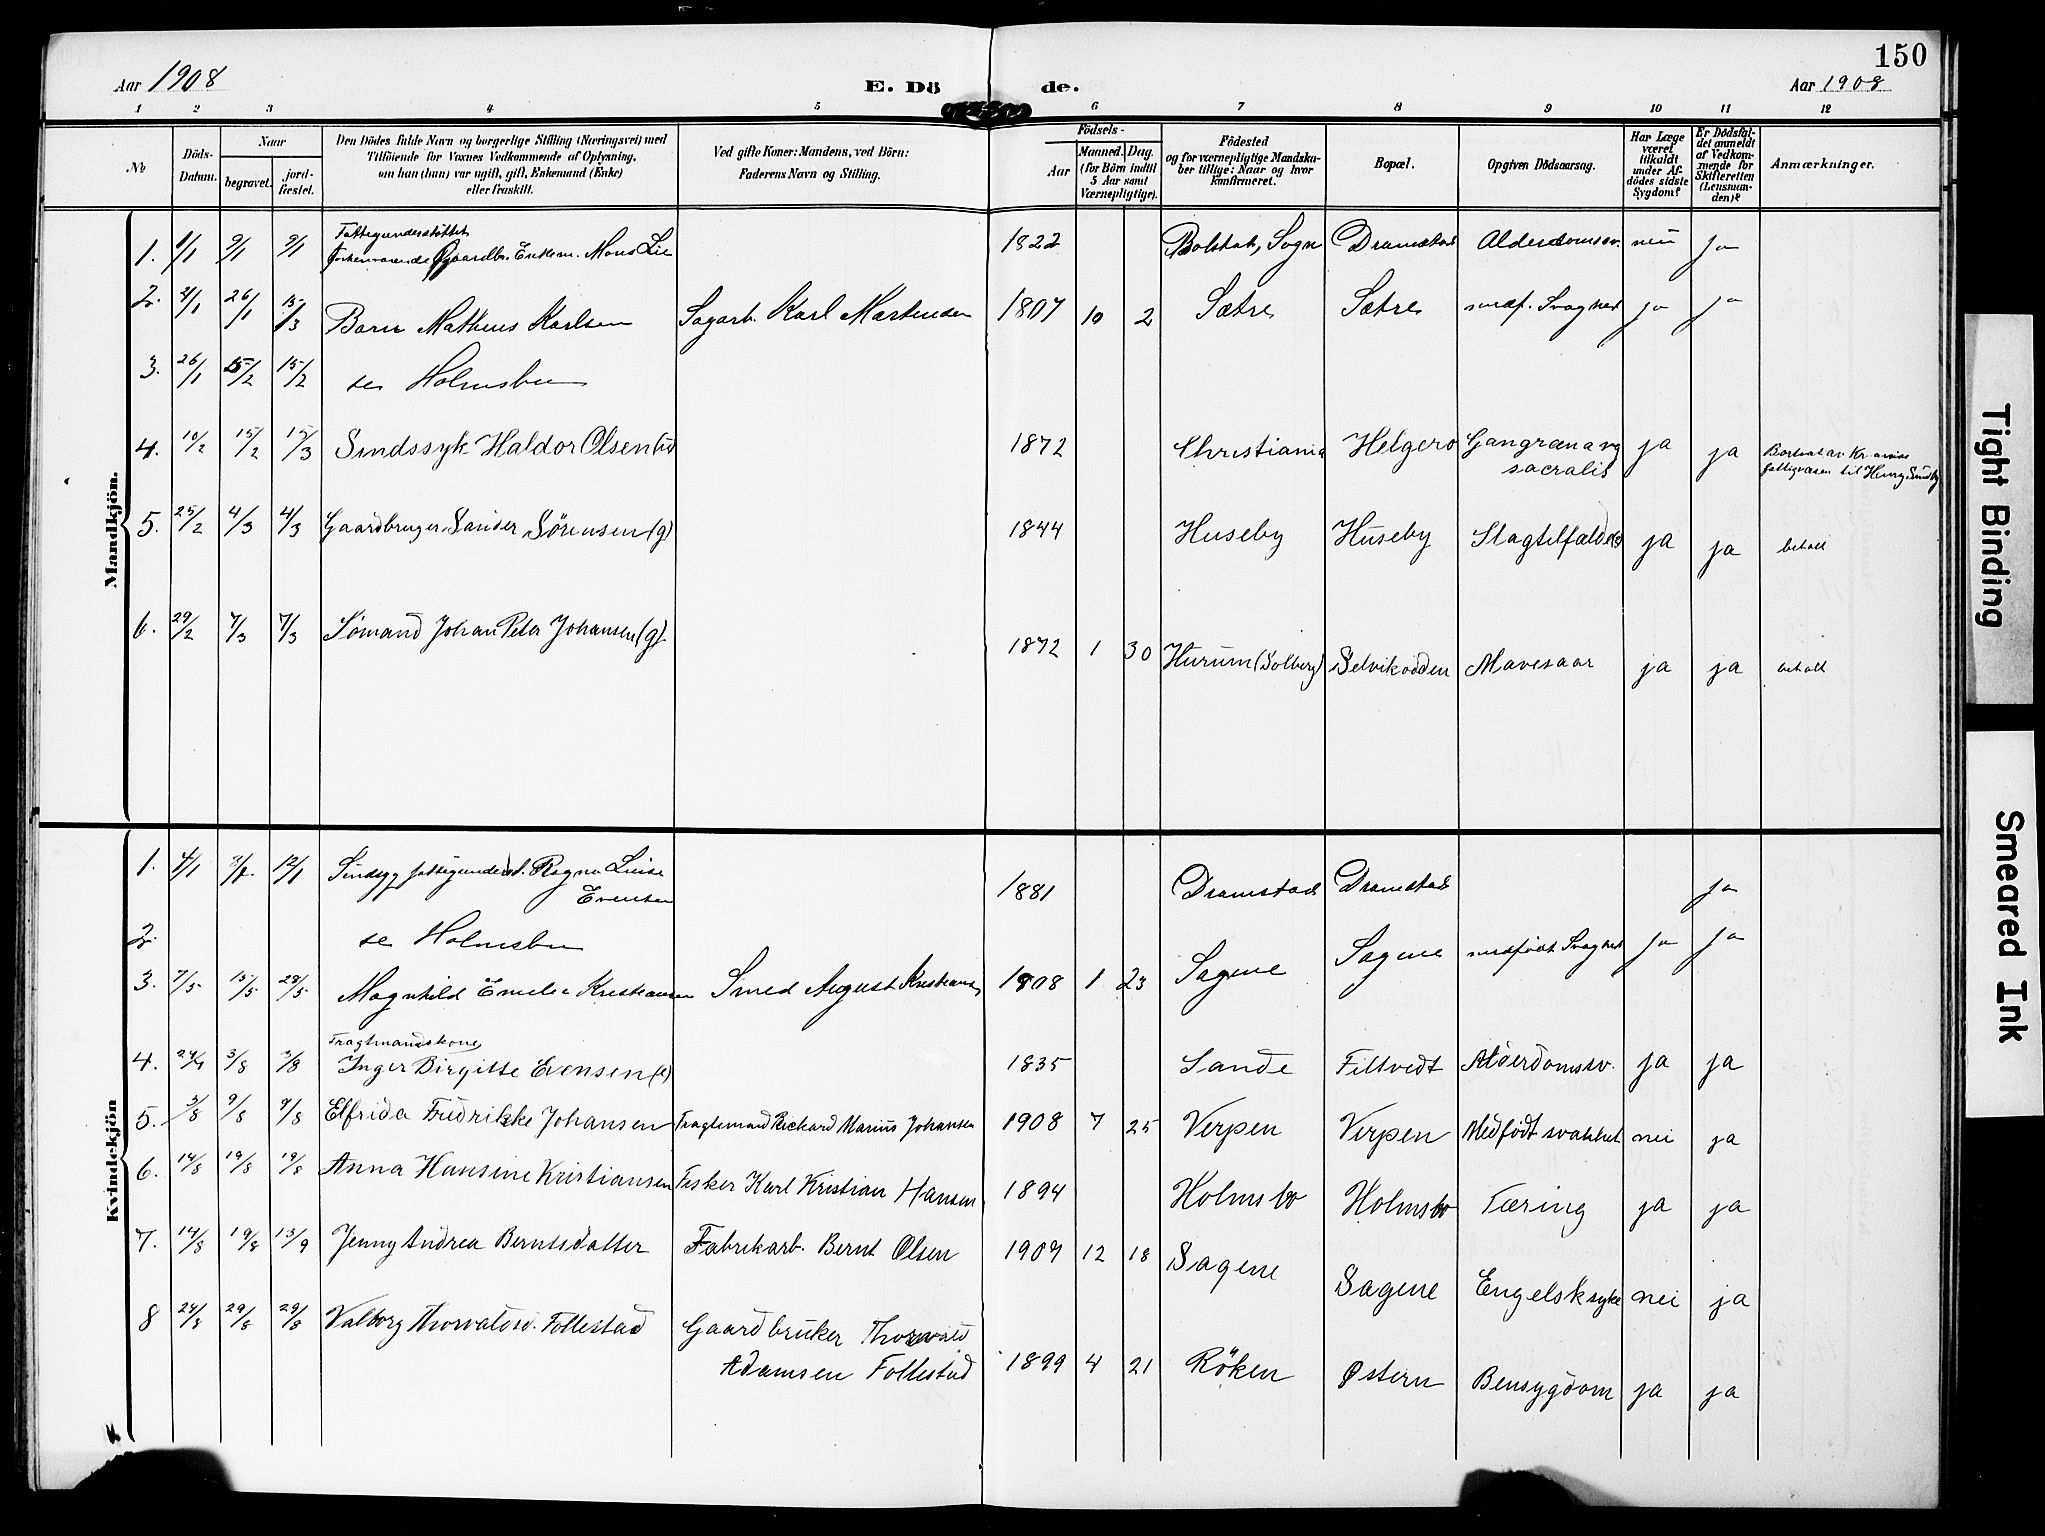 150
Aar 1908 E. Dö de. Aar 1908
1 2 3 4 5 6 7 8 9 10 11 12
No
Döds-Datum.
Naar
begravet.
jord-fæstet.
Den Dödes fulde Navn og borgerlige Stilling (Næringsvei) med
Tilföiende for Voxnes Vedkommende af Oplysning,
om han (hun) var ugift, gift, Enkemand (Enke)
eller fraskilt.
Ved gifte Koner: Mandens, ved Börn:
Faderens Navn og Stilling.
Födsels-
Aar
Maaned. Dag.
(for Börn indtil
5 Aar samt
Værnepligtige).
Födested
og for værnepligtige Mandska-
ber tillige: Naar og hvor
konfirmeret.
Bopæl.
Opgiven Dödsaarsag.
Har Læge
været
tilkaldt
under Af-
dödes sidste
Sygdom?
Er Dödsfal-
det anmeldt
af Vedkom-
mende for
Skifteretten
(Lensman-
den)?
Anmærkninger.
Mandkjön.
Fattigunderstöttet
1. 1/1 9/1 9/1 forhenværende Gaardbr. Enkem. Mons Lie 1822 Bolstad, Sogn Dramstad Alderdomssv. nei ja
2. 4/1 26/1 15/3 Barn Matheus Karlsen Sagarb. Karl Martinsen 1907 10 2 Sætre Sætre medf. Svaghed ja ja
3. 26/1 15/2 15/2 se Holmsbu
4. 10/2 15/2 15/3 Sindssyk Haldor Olsen 1872 Christiania Helgero Gangræna
sacralis ja ja Bortsat av Kr.anias
fattigvæsen til Henry Sundby
5. 25/2 4/3 4/3 Gaardbruger Sander Sørensen (g) 1844 Huseby Huseby Slagtilfælde ja ja betalt
6. 29/2 7/3 7/3 Sømand Johan Peter Johansen (g) 1872 1 30 Hurum (Solberg) Selvikodden Mavesaar ja ja betalt
Kvindekjön
1. 4/1 12/1 Sindsyg fattigunderst. Ragna Luise
Evensen 1881 Dramstad Dramstad ja
2. se Holmsbu
3. 7/5 15/5 28/5 Magnhild Emelie Kristiansen Smed August Kristiansen 1908 1 23 Sagene Sagene medfödt Svaghed ja ja
Fragtmandskone
4. 3/8 3/8 Inger Birgitte Evensen (e) 1835 Sande Filtvedt Alderdomssv. ja ja
5. 3/8 9/8 9/8 Elfrida Fridrikke Johansen Fragtemand Rickard Marius Johansen 1908 7 25 Verpen Verpen Medfödt svakhet nei ja
6. 14/8 19/8 19/8 Anna Hansine Kristiansen Fisker Karl Kristian Hansen 1894 Holmsbo Holmsbo Tæring ja ja
7. 14/8 19/8 13/9 Jenny Andrea Berntsdatter Fabrikarb. Bernt Olsen 1907 12 18 Sagene Sagene Engelsk syke nei ja
8 24/8 29/8 29/8 Valborg Thorvaldsd. Follestad Gaardbruker Thorvald
Adamsen Follestad 1899 4 21 Röken Østern Bensygdom ja ja
Tight Binding
Smeared Ink